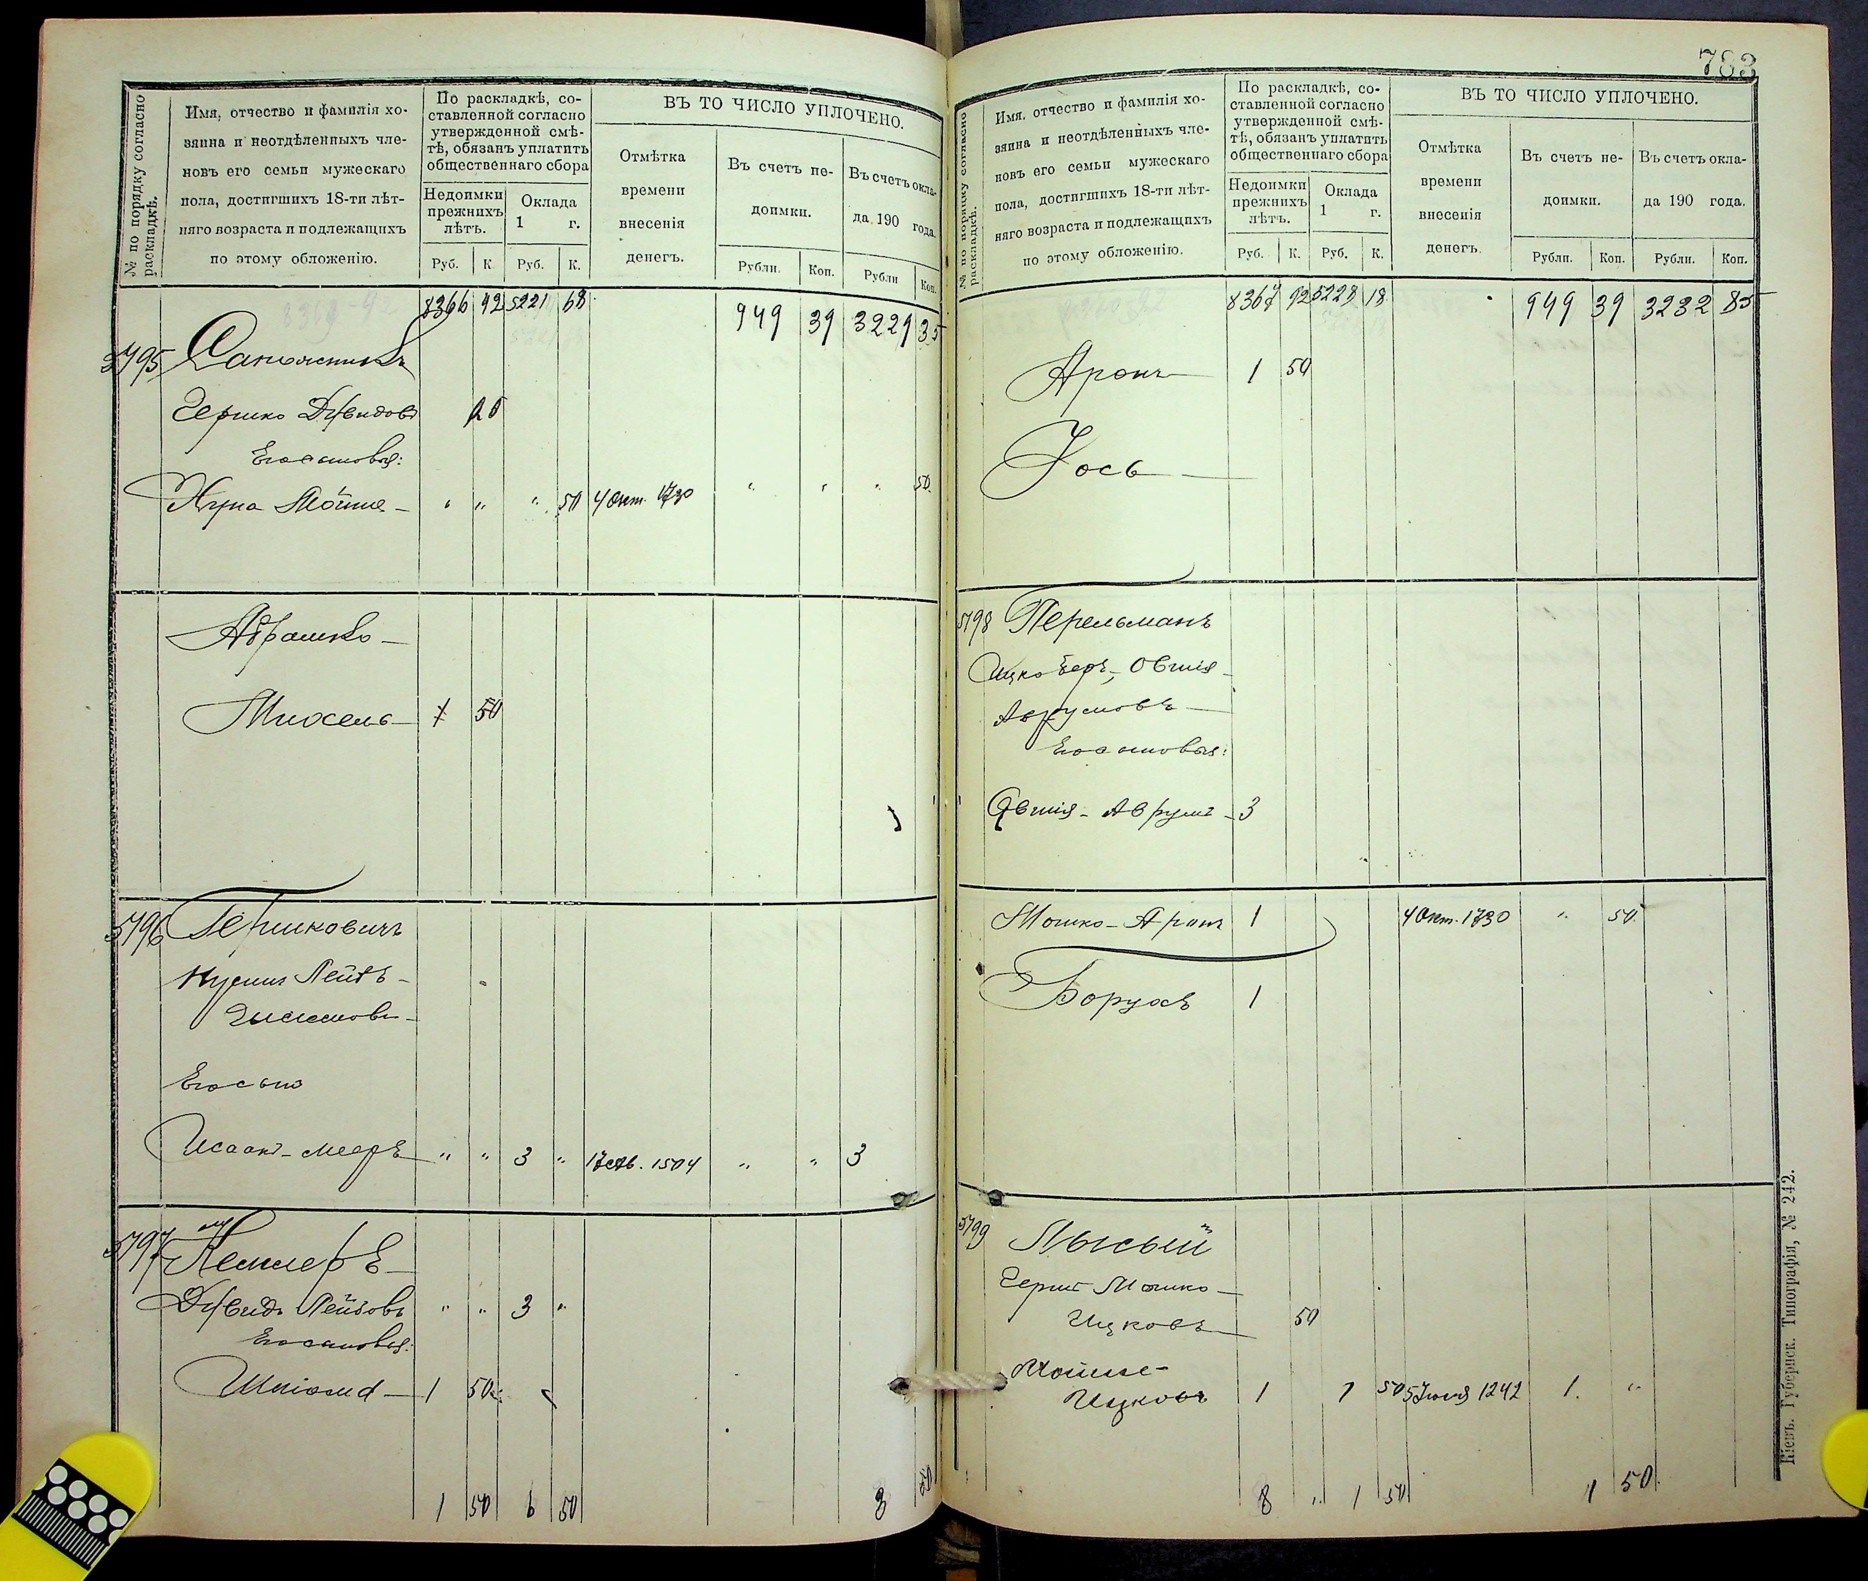 № по порядку согласно раскладкѣ.
Имя, отчество и фамилія хо-
зяина и неотдѣленныхъ чле-
новъ его семьи мужескаго
пола, достигшихъ 18-ти лѣт-
няго возраста и подлежащихъ
по этому обложенію.
По раскладкѣ, со-
ставленной согласно
утвержденной смѣ-
тѣ, обязанъ уплатить
общественнаго сбора
Недоимки
прежнихъ
лѣтъ.
Оклада
1 г.
Руб. К. Руб. К.
ВЪ ТО ЧИСЛО УПЛОЧЕНО.
Отмѣтка
времени
внесенія
денегъ.
Въ счетъ не-
доимки.
Въ счетъ окла-
да 190 года.
Рубли. Коп. Рубли Коп.
8366 92 5221 68 949 39 3229 35
5795 Сапожникъ
Гершко Дувидовъ
Его сыновья:
Нута Мойше - " " " 50 4 Окт. 1730 " " " 50
Абрашко -
Миохель - 1 50
5796 Гершковичъ
Нусинъ Лейбъ -
Его сынъ
Исаакъ-Мееръ " " 3 " 1504 " " 3
5797 Кеммеръ
Дувидъ Лейбовъ " " 3 "
Его сыновья:
Шліома - 1 50
1 50 6 50 3 50
783
№ по порядку согласно раскладкѣ.
Имя, отчество и фамилія хо-
зяина и неотдѣленныхъ чле-
новъ его семьи мужескаго
пола, достигшихъ 18-ти лѣт-
няго возраста и подлежащихъ
по этому обложенію.
По раскладкѣ, со-
ставленной согласно
утвержденной смѣ-
тѣ, обязанъ уплатить
общественнаго сбора
Недоимки
прежнихъ
лѣтъ.
Оклада
1 г.
Руб. К. Руб. К.
ВЪ ТО ЧИСЛО УПЛОЧЕНО.
Отмѣтка
времени
внесенія
денегъ.
Въ счетъ не-
доимки.
Въ счетъ окла-
да 190 года.
Рубли. Коп. Рубли. Коп.
8367 92 5228 18 949 39 3232 85
Аронъ 1 50
Іось
5798 Перельманъ
Ицко Беръ-Овшія
Аврумовъ
Его сыновья:
Овшія-Аврумъ - 3
Мошко-Аронъ 1 4 Окт. 1730 " 50
Борухъ 1
5799 Лысый
Гершъ Мошко -
Ицковъ 50
Мойше-
Ицковъ 1 1 50 5 Іюля 1242 1 "
8 " 1 50 1 50
Кіевъ. Губернск. Типографія, № 242.